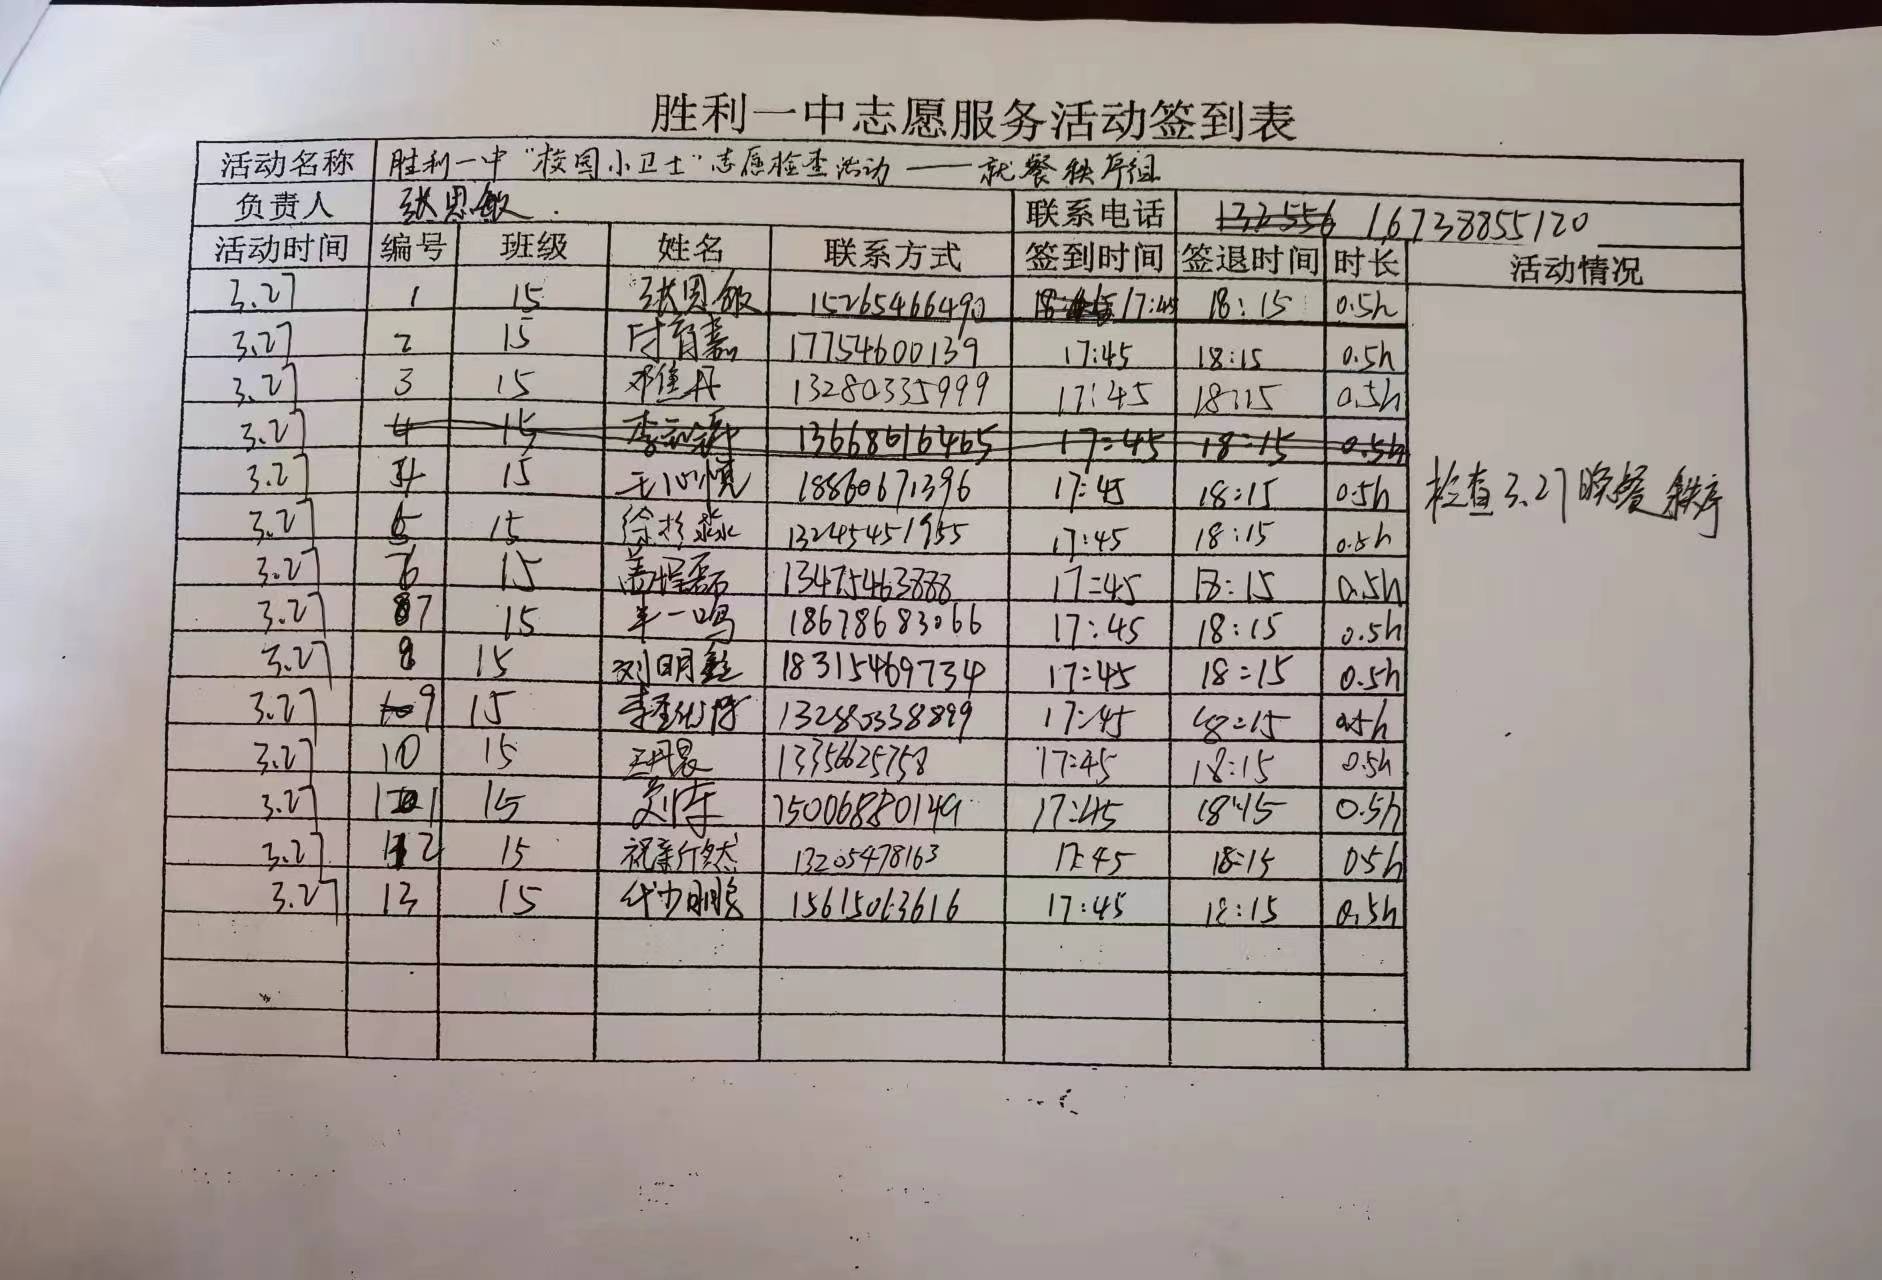 胜利一中志愿服务活动签到表
活动名称 胜利一中“校园小卫士”志愿检查活动——就餐秩序组
负责人 张恩敏 联系电话 132556 16738855120
活动时间 编号 班级 姓名 联系方式 签到时间 签退时间 时长 活动情况
3.27 1 15 张恩敏 15265466490 17:45 18:15 0.5h
3.27 2 15 付育嘉 17754600139 17:45 18:15 0.5h
3.27 3 15 邓佳丹 13280335999 17:45 18:15 0.5h
3.27 4 15 13668616465 17:45 18:15 0.5h
3.27 4 15 王心慎 18860671396 17:45 18:15 0.5h
检查3.27晚餐秩序
3.27 5 15 徐杉淼 13245451955 17:45 18:15 0.5h
3.27 6 15 盖程磊 13475463888 17:45 18:15 0.5h
3.27 7 15 牟一鸣 18678683066 17:45 18:15 0.5h
3.27 8 15 刘明鑫 18315469734 17:45 18:15 0.5h
3.27 9 15 13280338899 17:45 18:15 0.5h
3.27 10 15 13356625758 17:45 18:15 0.5h
3.27 11 15 15006880149 17:45 18:15 0.5h
3.27 12 15 祝新然 13205478163 17:45 18:15 0.5h
3.27 13 15 代少鹏 15615063616 17:45 18:15 0.5h